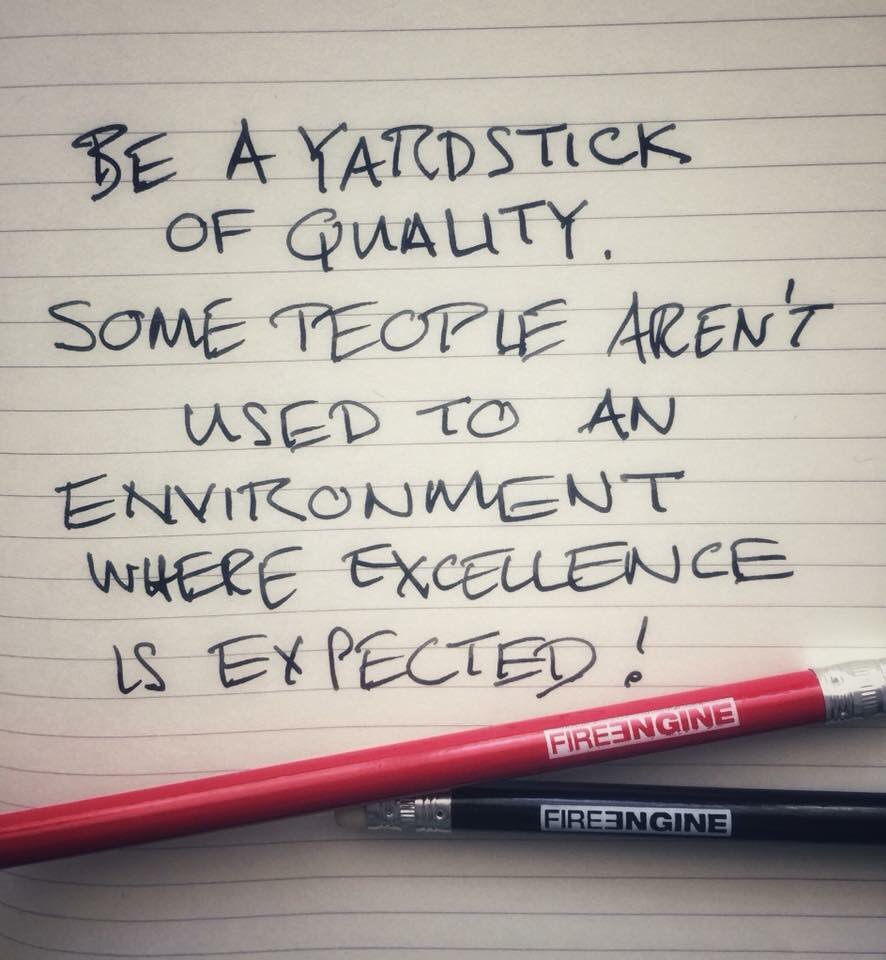 BE A YARDSTICK
OF QUALITY.
SOME PEOPLE AREN'T
USED TO AN
ENVIRONMENT
WHERE EXCELLENCE
IS EXPECTED!
FIREENGINE
FIREENGINE